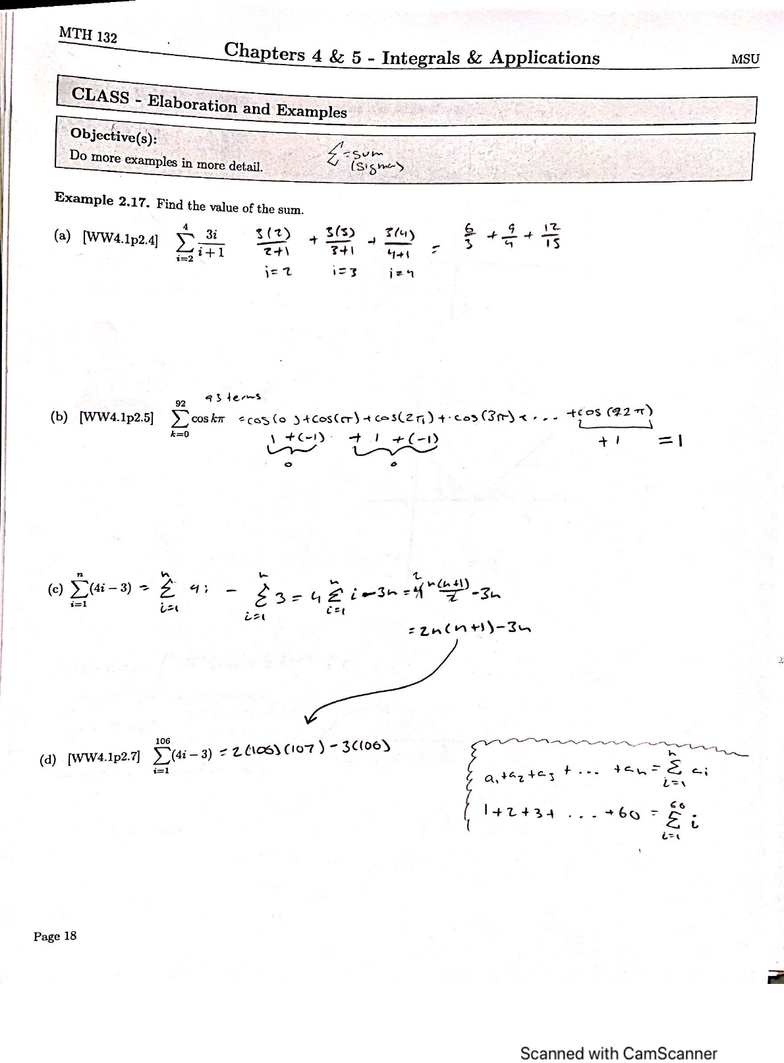 MTH 132
Chapters 4 & 5 - Integrals & Applications
MSU
CLASS - Elaboration and Examples
Objective(s):
Do more examples in more detail.
Σ = sum
(Sigma)
Example 2.17. Find the value of the sum.
(a) [WW4.1p2.4] \sum_{i=2}^{4} \frac{3i}{i+1} \frac{3(2)}{2+1} + \frac{3(3)}{3+1} + \frac{3(4)}{4+1} = \frac{6}{3} + \frac{9}{4} + \frac{12}{15}
i=2 i=3 i=4
93 terms
(b) [WW4.1p2.5] \sum_{k=0}^{92} cos kπ = cos(0) + cos(π) + cos(2π) + cos(3π) + ... + cos(92π)
1 + (-1) + 1 + (-1) + 1 = 1
0 0
(c) \sum_{i=1}^{n} (4i - 3) = \sum_{i=1}^{n} 4i - \sum_{i=1}^{n} 3 = 4 \sum_{i=1}^{n} i - 3n = 4^2 \frac{n(n+1)}{2} - 3n
= 2n(n+1) - 3n
(d) [WW4.1p2.7] \sum_{i=1}^{106} (4i - 3) = 2(106)(107) - 3(106)
a_1 + a_2 + a_3 + ... + a_n = \sum_{i=1}^{n} a_i
1 + 2 + 3 + ... + 60 = \sum_{i=1}^{60} i
Page 18
Scanned with CamScanner